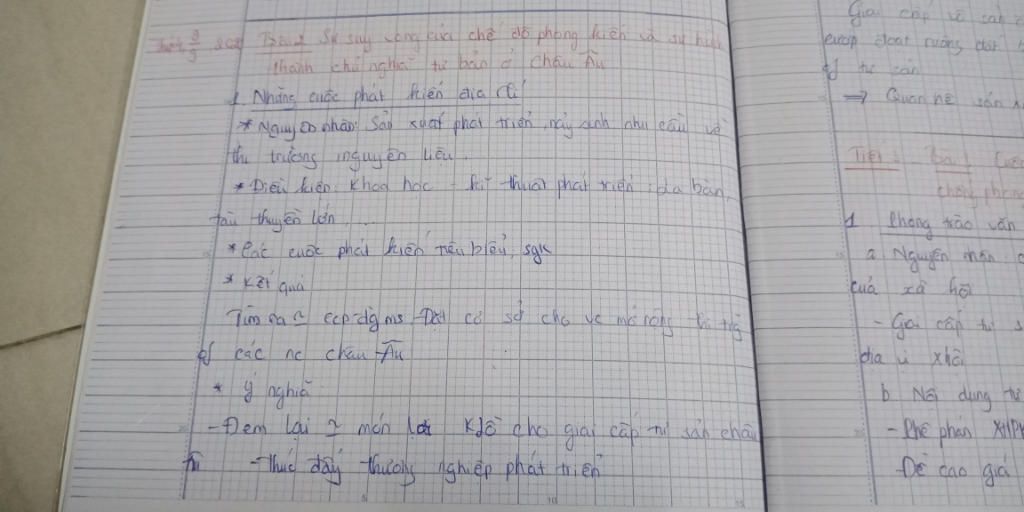 Bài 2 Sự suy vong của chế độ phong kiến và sự hình
thành chủ nghĩa tư bản ở Châu Âu
1 Những cuộc phát kiến địa lí
* Nguyên nhân: Sản xuất phát triển, nảy sinh nhu cầu về
thị trường, nguyên liệu.
* Điều kiện: Khoa học - kĩ thuật phát triển: địa bàn,
tàu thuyền lớn, ...
* Các cuộc phát kiến tiêu biểu, sgk
* Kết quả
Tìm ra ms. Đặt cơ sở cho vc mở rộng
các nc châu Âu
* ý nghĩa
- Đem lại món lời kđồ cho giai cấp tư sản châu
Âu - Thúc đẩy thương nghiệp phát triển
Giai cấp vô sản
cướp đoạt ruộng đất
tư sản
=> Quan hệ sản
Tiết: Bài
chống phong
1 Phong trào văn
a Nguyên nhân
của xã hội
- Giai cấp tư s
địa vị xhội
b Nội dung tư
- Phê phán XHPK
- Đề cao giá